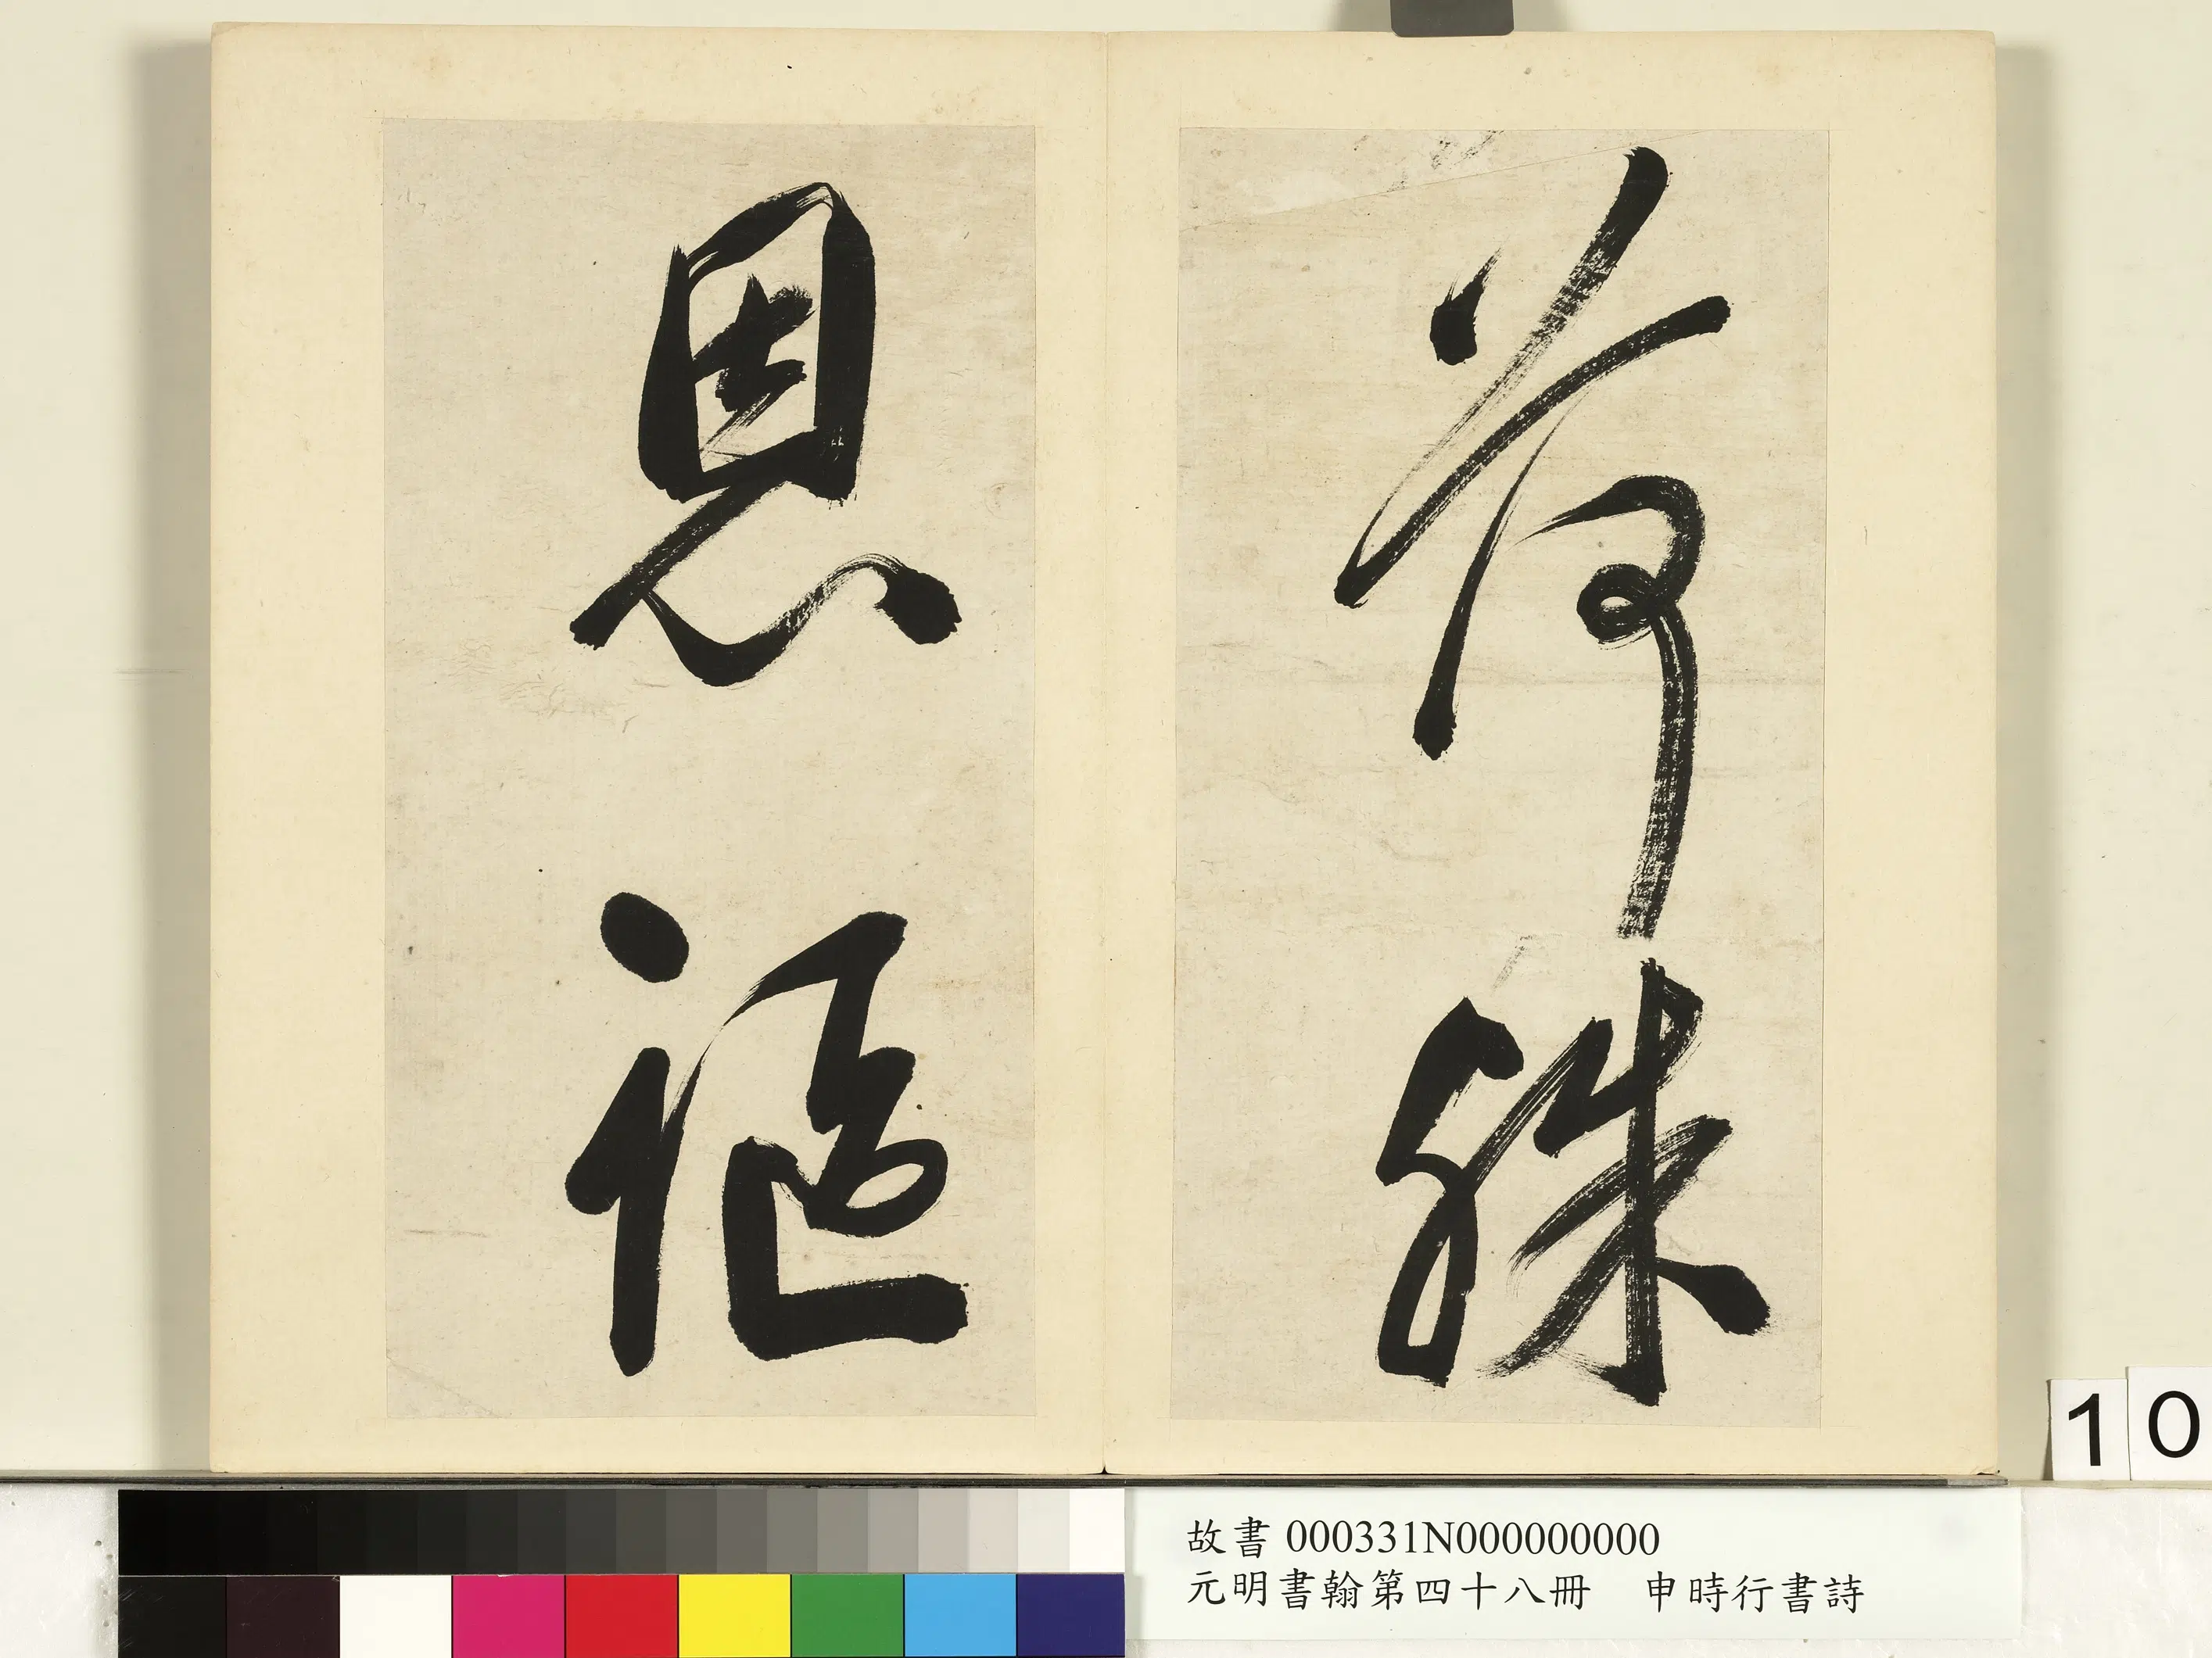 荷殊
恩謳
10
故書 000331N000000000
元明書翰第四十八冊 申時行書詩